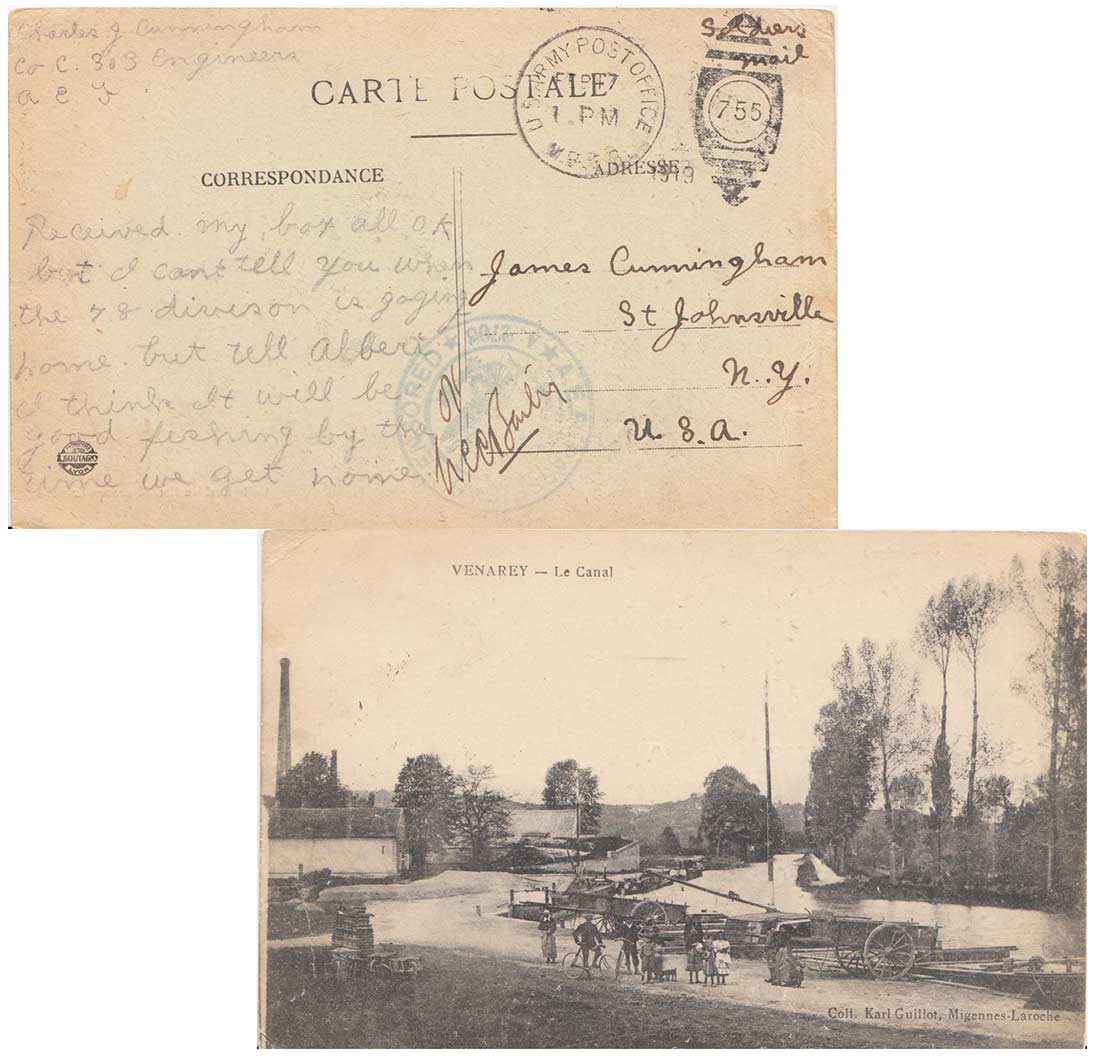 Charles J Cunningham
Co C. 303 Engineers
A E F
CARTE POSTALE
U.S. ARMY POST OFFICE
FEB 17
1 PM
M.P.E.S.
1919
755
Soldiers
mail
CORRESPONDANCE
ADRESSE
Received my box all OK
but I cant tell you when
the 78 divison is goging
home. but tell Albert
I think It will be
good fishing by the
time we get home
James Cunningham
St Johnsville
N.Y.
U.S.A.
OK
A.E.F.
GOUTAGNY
LYON
VENAREY — Le Canal
Coll. Karl Guillot, Migennes-Laroche